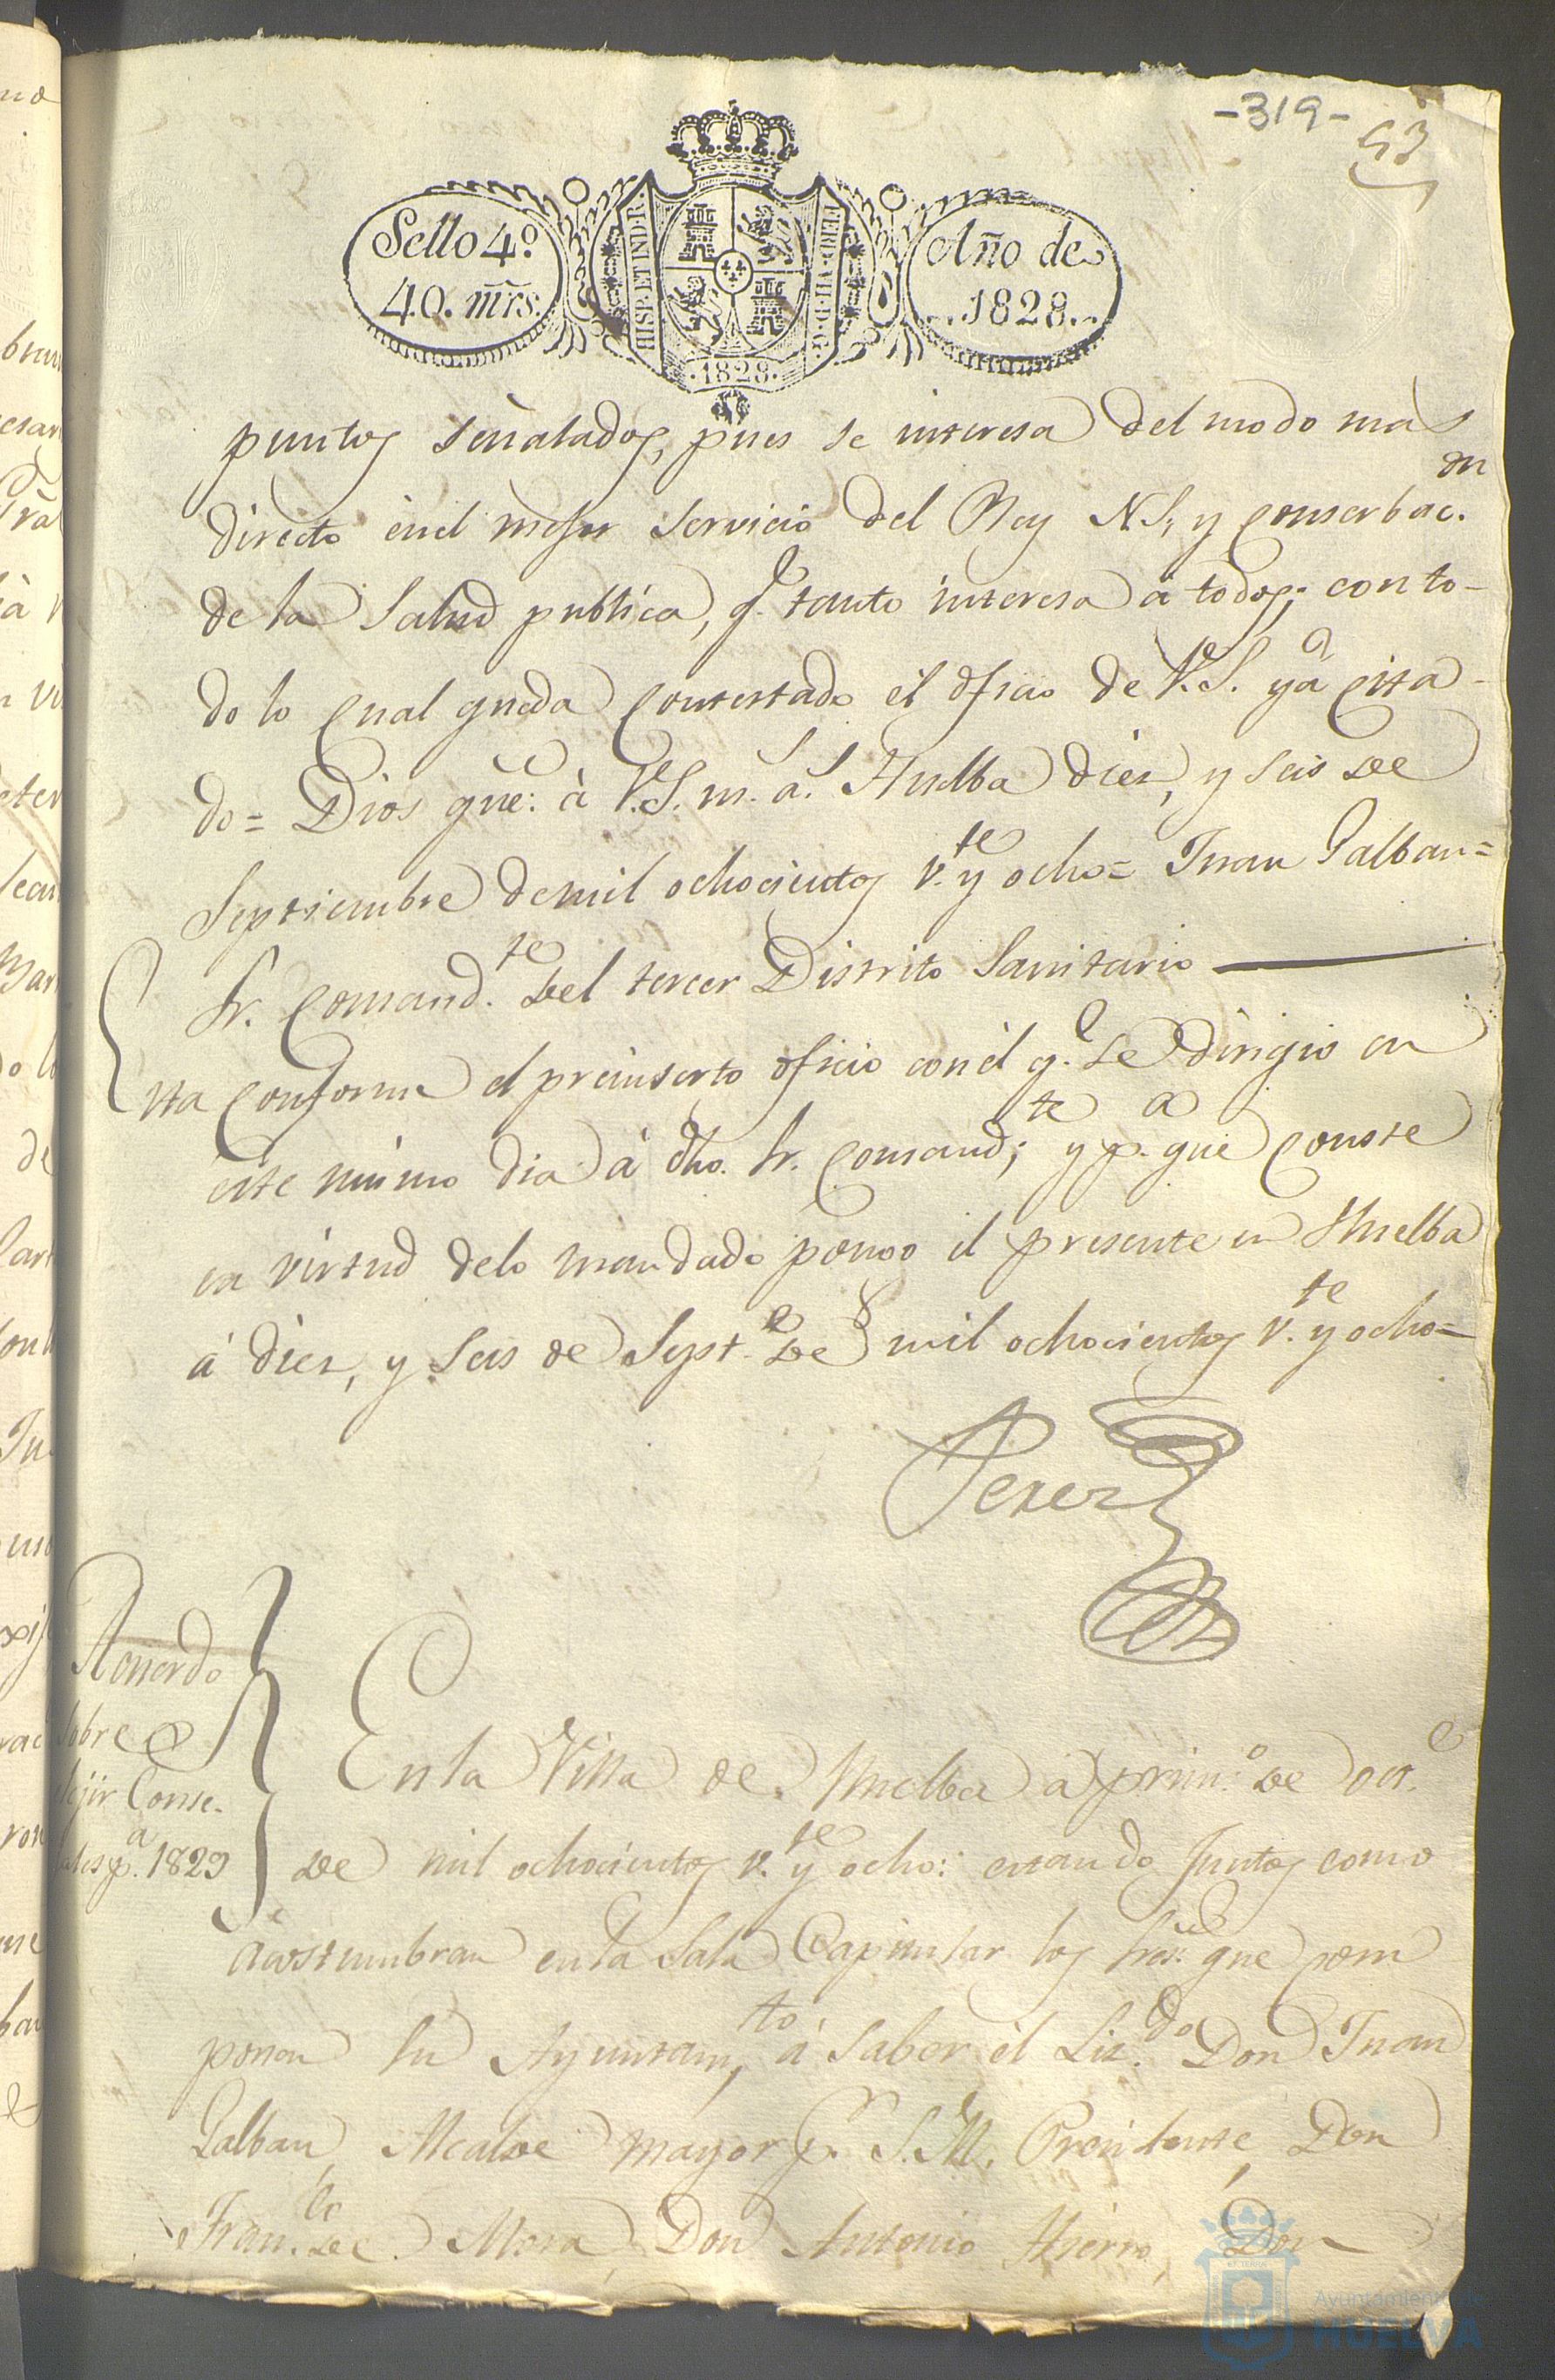 -319-
53
Sello 4º
40. mrs.
HISP. ET IND. R.
FERD. VII. D. G.
1828.
Año de
1828.
puntos señalados, pues se interesa del modo mas
directo en el mejor servicio del Rey N.S., y conserbac.on
de la Salud publica, q.e tanto interesa á todos; con to-
do lo cual queda contestado el oficio de V.S. ya cita-
do= Dios gue. à V.S. m.s a.s Huelba diez, y seis de
Septiembre de mil ochocientos v.te y ocho= Juan Galban=
Sr. Comand.te del tercer Distrito Sanitario
Sta conforme el preinserto oficio con él q.e se dirigio en
este mismo dia á dho. Sr. Comand.te; y p.a que conste
en virtud delo mandado pongo el presente en Huelba
á diez, y seis de Sept.e de mil ochocientos v.te y ocho=
Perez
Acuerdo
sobre
lejir Conse-
ales p.a 1829
En la Villa de Huelba à prim.o de oct.e
de mil ochocientos v.te y ocho: estando Juntos como
àcostumbran en la Sala Capitular los Sres. que com
ponen su Ayuntam.to, á saber él Liz.do Don Juan
Galban, Alcalde mayor p.r S.M. Presidente, Don
Fran.co de Mora, Don Antonio Hierro, Don
Ayuntamiento de
HUELVA